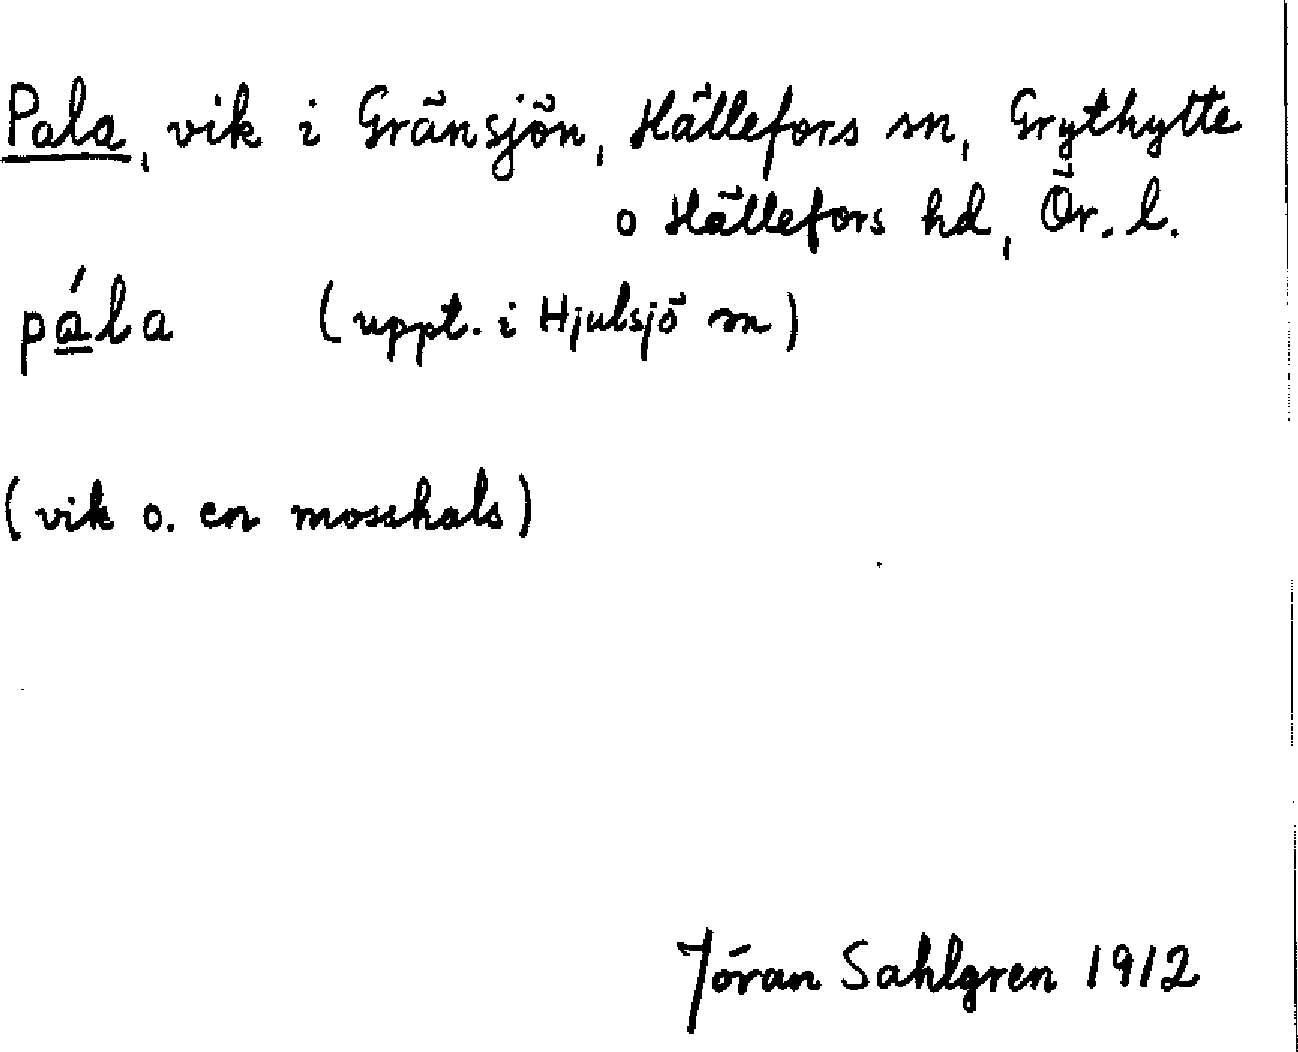 Pala, vik i Gränsjön, Hällefors sn, Grythytte
o Hällefors hd, Ör. l.
pála (uppt. i Hjulsjö sn)
(vik o. en mosshals)
Jöran Sahlgren 1912